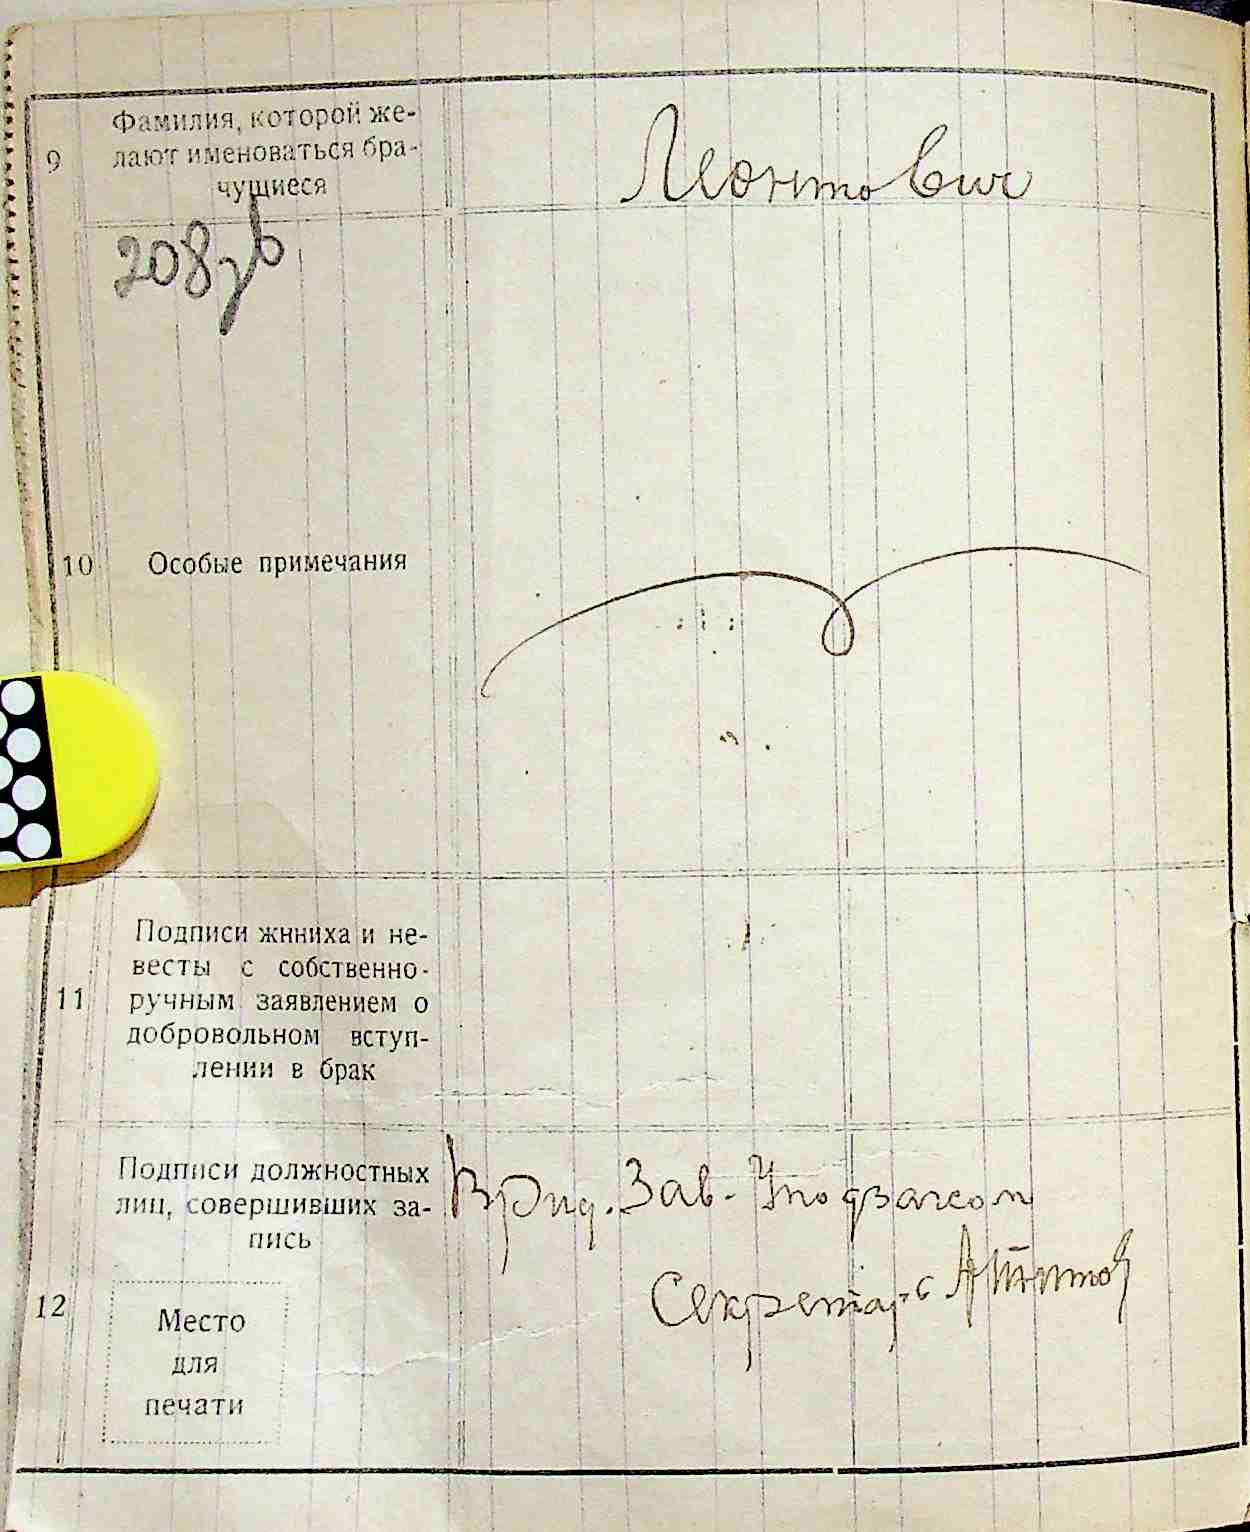 9
Фамилия, которой же-
лают именоваться бра-
чущиеся
Леонтович
208
10
Особые примечания
11
Подписи жниха и не-
весты с собственно-
ручным заявлением о
добровольном вступ-
лении в брак
12
Подписи должностных
лиц, совершивших за-
пись
Врид. Зав. Уподзагсом
Секретарь
Место
для
печати